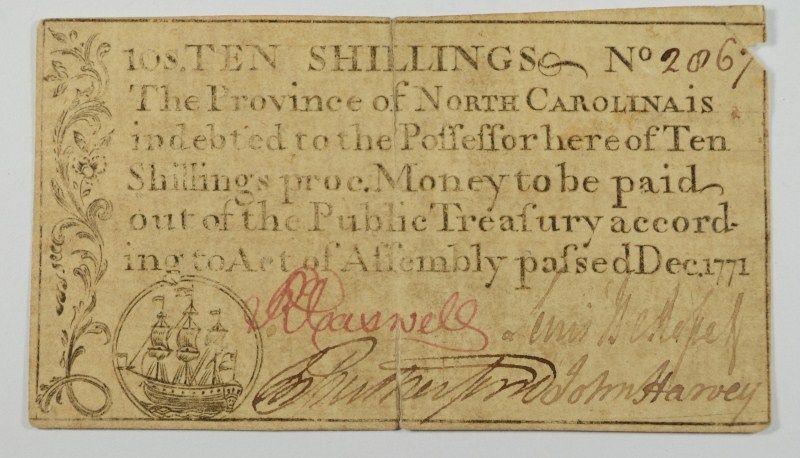 10s. TEN SHILLINGS No 2867
The Province of NORTH CAROLINA is
indebted to the Poſſeſſor here of Ten
Shillings proc. Money to be paid
out of the Public Treaſury accord-
ing to Act of Aſſembly paſsed Dec. 1771
R Caswell Lewis De Rosset
Rutherfurd John Harvey